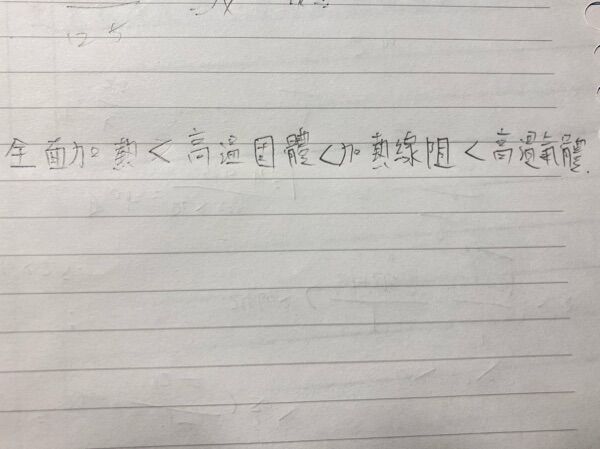 125
全面加熱<高溫固體<加熱線阻<高溫氣體.